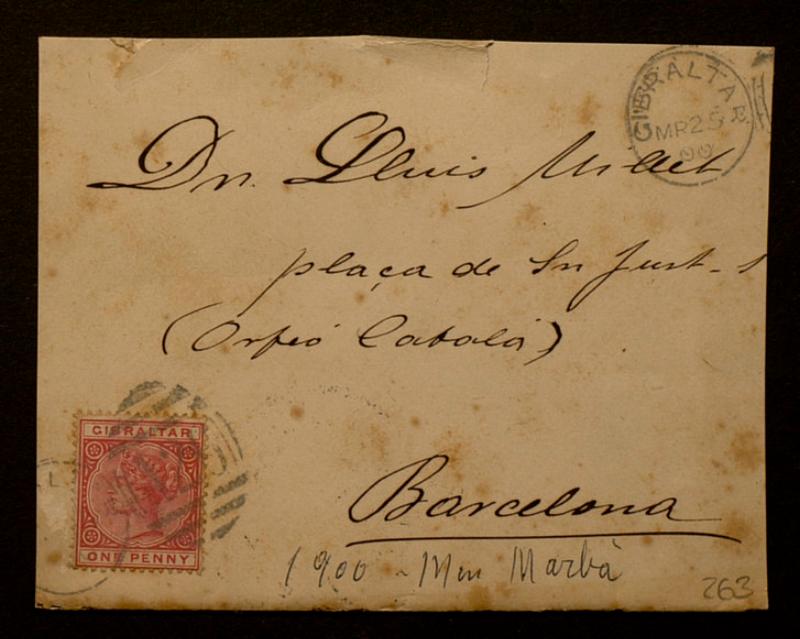 GIBRALTAR
MR 25
00
Dn. Lluis Millet
plaça de Sn Just - 1
(Orfeó Catalá)
Barcelona
GIBRALTAR
ONE PENNY
1900 - Marbà
263